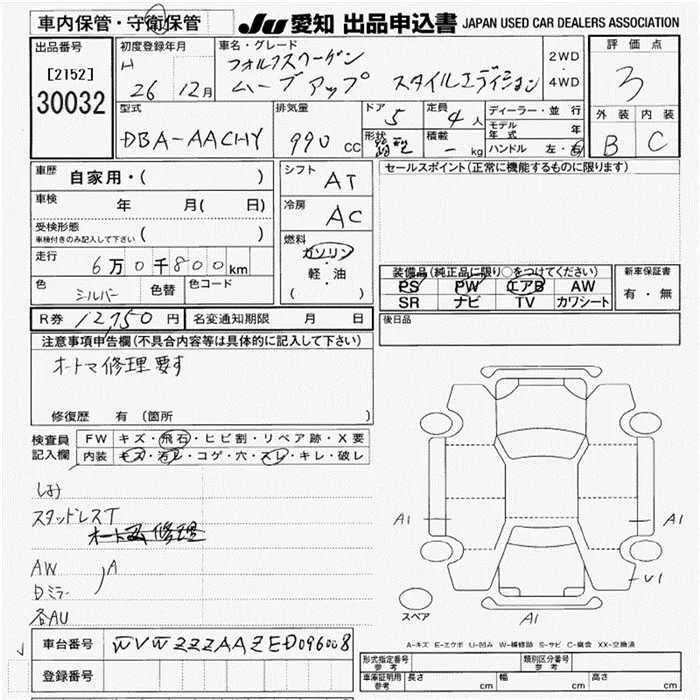 車内保管・守衛保管
JU 愛知 出品申込書 JAPAN USED CAR DEALERS ASSOCIATION
出品番号
[2152]
30032
初度登録年月
H 26 12月
車名・グレード
フォルクスワーゲン
ムーブアップ スタイルエディション
2WD
・
4WD
評価点
3
外装 内装
B C
型式
DBA-AACHY
排気量
990 cc
ドア 5
形状
定員 4人
積載 - kg
ディーラー・並 行
モデル年式 年
ハンドル 左・右
車歴 自家用・( )
車検 年 月( 日)
受検形態
車検付きのみ記入して下さい ( )
走行 6万0千800km
色 シルバー 色替 色コード
シフト AT
冷房 AC
燃料
ガソリン
・
軽・油
( )
セールスポイント(正常に機能するものに限ります)
装備品(純正品に限り○をつけてください)
PS PW エアB AW
SR ナビ TV カワシート
新車保証書
有・無
R券 12,750円 名変通知期限 月 日
後日品
注意事項申告欄(不具合内容等は具体的に記入して下さい)
オートマ修理要す
修復歴 有 (箇所 )
検査員記入欄
FW キズ・飛石・ヒビ割・リペア跡・X要
内装 キズ・汚レ・コゲ・穴・スレ・キレ・破レ
スタッドレスT
オートマ修理
AW
Dミラー A
各AU
A1 A1
U1
スペア A1
A-キズ E-エクボ U-凹み W-補修跡 S-サビ C-腐食 XX-交換済
車台番号 WVWZZZAAZED096008
登録番号
形式指定番号 参考 類別区分番号 参考
車庫証明用 参考 長さ cm 幅 cm 高さ cm